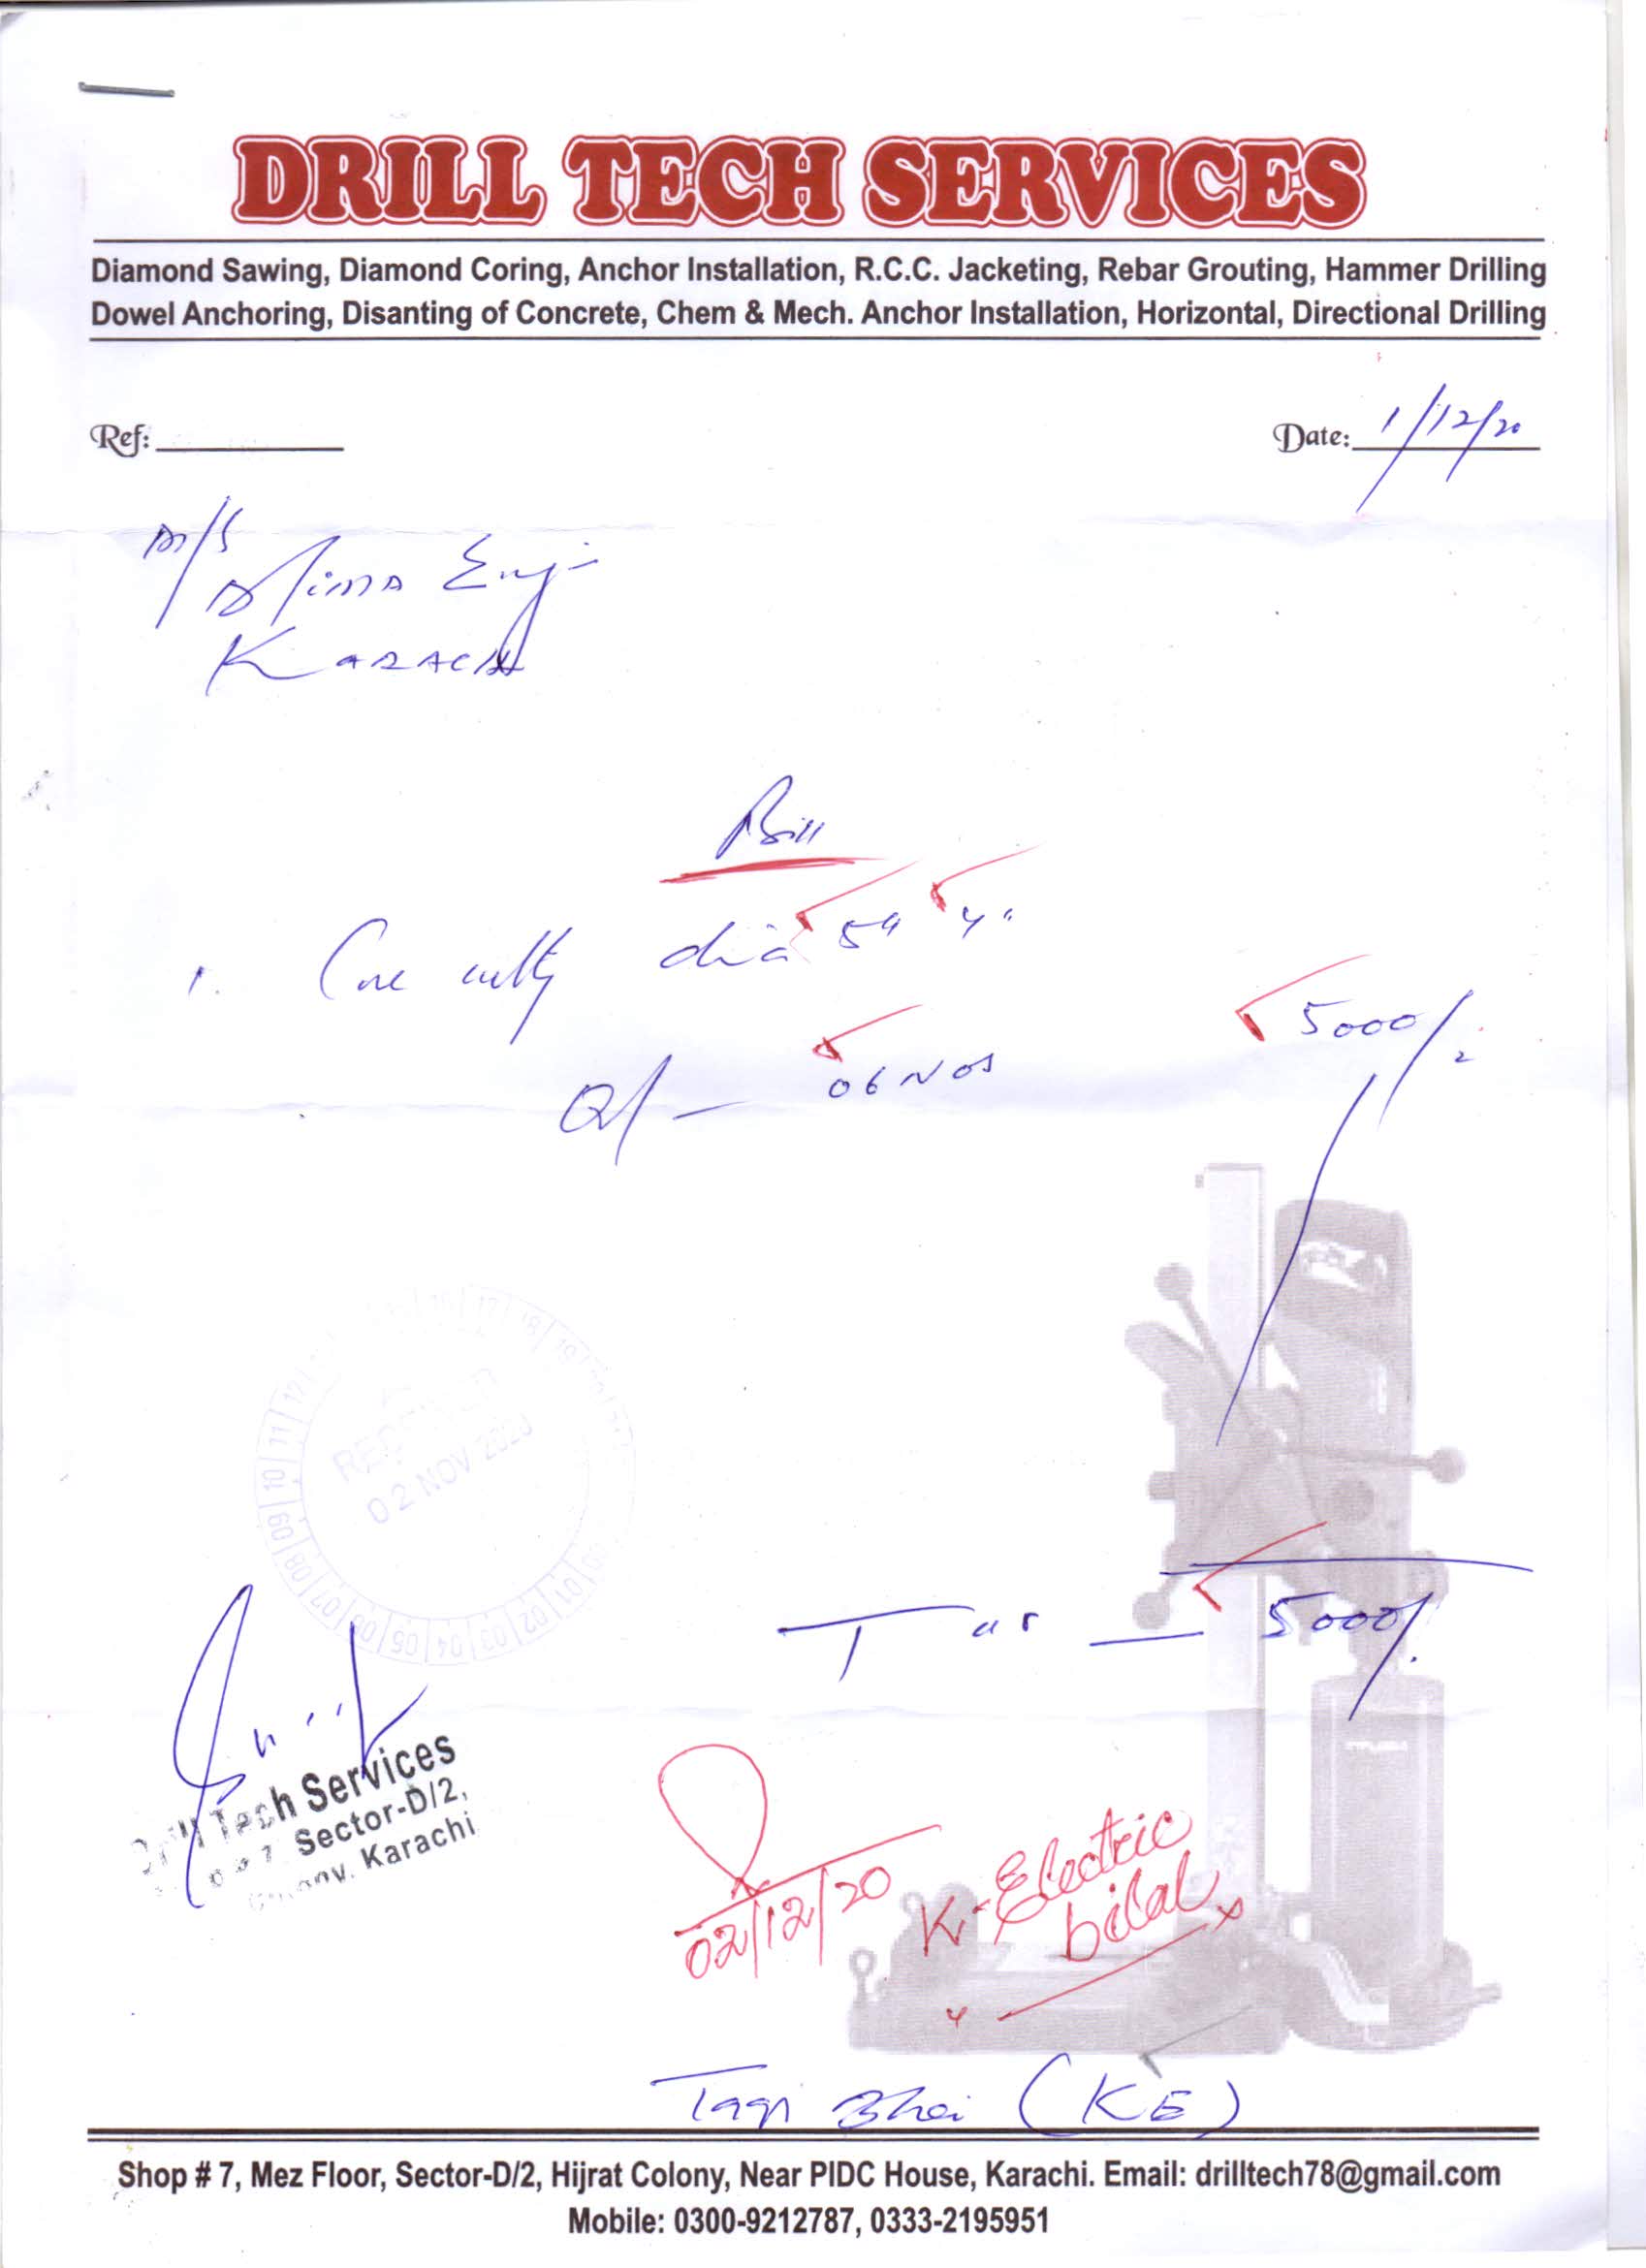 DRILL TECH SERVICES
Diamond Sawing, Diamond Coring, Anchor Installation, R.C.C. Jacketing, Rebar Grouting, Hammer Drilling
Dowel Anchoring, Disanting of Concrete, Chem & Mech. Anchor Installation, Horizontal, Directional Drilling
Ref:
Date: 1/12/20
M/S
Eng-
KARACHI
Bill
1. Core dia 5" 4"
5000/-
06 Nos
RECEIVED
02 NOV 2020
5000/-
Drill Tech Services
Sector-D/2,
Colony, Karachi
02/12/20
K-Electric
bilal
Taqi Bhai (KE)
Shop # 7, Mez Floor, Sector-D/2, Hijrat Colony, Near PIDC House, Karachi. Email: drilltech78@gmail.com
Mobile: 0300-9212787, 0333-2195951